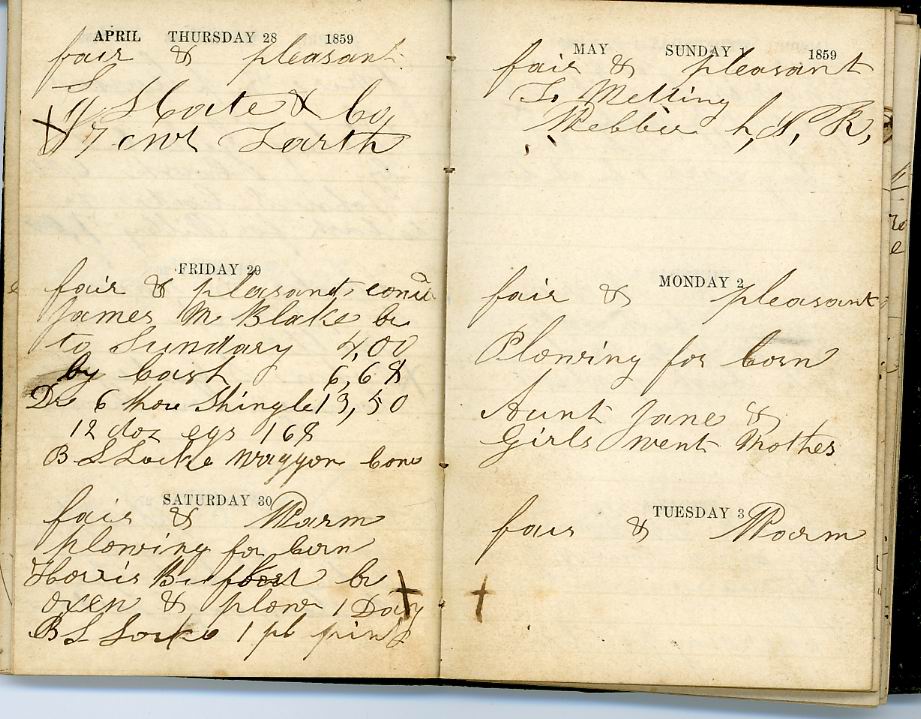 APRIL THURSDAY 28 1859
fair & pleasant
& by
7 cwt Earth
FRIDAY 29
fair & pleasant
James M Blake
to Sundary 4,00
by Cash 6,68
6 thou Shingle 13,50
12 doz egs 168
B S Locke Waggon
SATURDAY 30
fair & Warm
plowing for corn
oxen & plow 1 Day
B S Locke 1
MAY SUNDAY 1 1859
fair & pleasant
To Metting
MONDAY 2
fair & pleasant
Plowing for corn
Aunt Jane &
Girls went Mothes
TUESDAY 3
fair & Warm